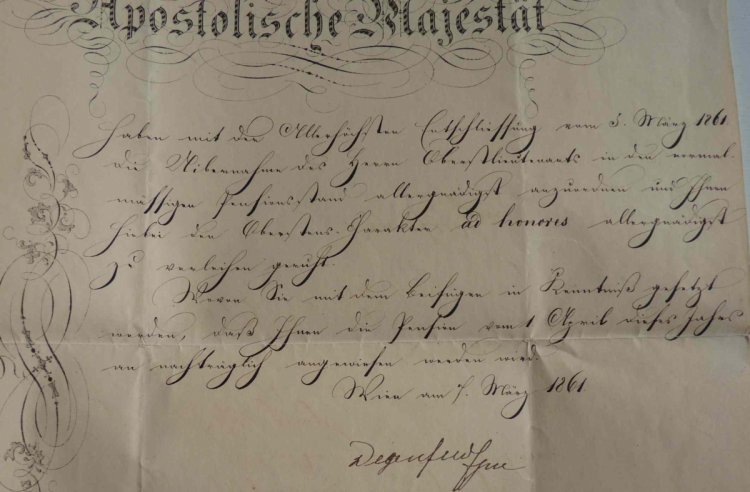 Apostolische Majestät
haben mit der Allerhöchsten Entschliessung vom 5. März 1861.
die Uibernahme des Herrn Oberstlieutenants in den normal-
mässigen Pensionsstand allergnädigst anzuordnen und Ihnen
hiebei den Oberstens-Charakter ad honores allergnädigst
zu verleihen geruht.
Wovon Sie mit dem Beifügen in Kenntniß gesetzt
werden, daß Ihnen die Pension vom 1 April dieses Jahres
an nachträglich angewiesen werden wird.
Wien am 7. März 1861.
Degenfeld